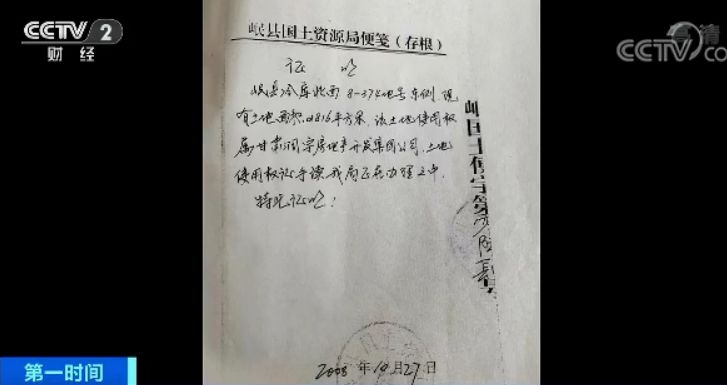 CCTV 2
财经
高清
CCTV.CO
岷县国土资源局便笺(存根)
证 明
岷县冷库北面8-374地号东侧,现
有土地面积2816平方米,该土地使用权
属甘肃润宇房地产开发集团公司,土地
使用权证手续,我局正在办理之中,
特此证明!
2008年10月27日
第一时间